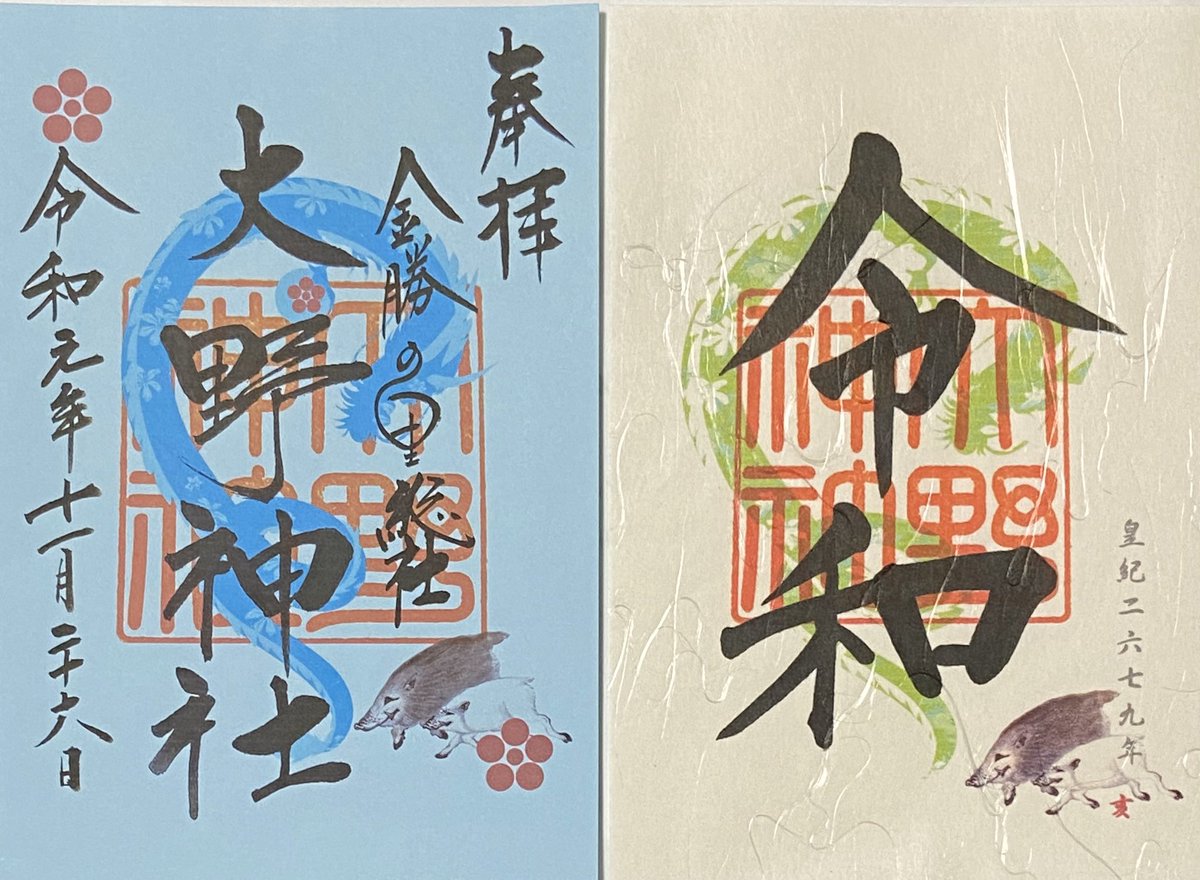 奉拝
金勝の里総社
大野神社
令和元年十一月二十六日
大野
神社
令和
皇紀二六七九年
亥
大野
神社